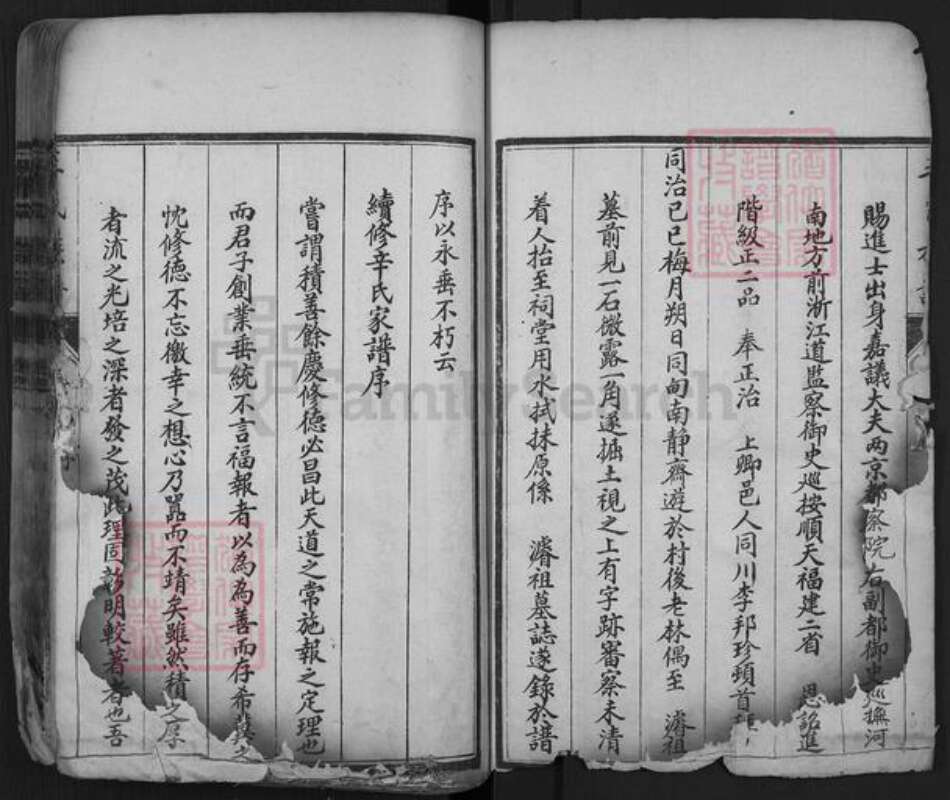 賜進士出身嘉議大夫两京都察院右副都御史巡撫河
南地方前浙江道監察御史巡按順天福建二省 恩詔進
階級正二品 奉正治 上卿邑人同川李邦珍頓首
同治己巳梅月朔日同甸南靜齋遊於村後老林偶至 濬祖
墓前見一石微露一角遂掘土視之上有字跡審察未清
着人抬至祠堂用水拭抹原係 濬祖墓誌遂錄於譜
序以永垂不朽云
續修辛氏家譜序
嘗謂積善餘慶修德必昌此天道之常施報之定理也
而君子創業垂統不言福報者以為為善而存希冀之
忱修德不忘徼幸之想心乃囂而不靖矣雖然積之厚
者流之光培之深者發之茂此理固彰明較著者也吾
FamilySearch